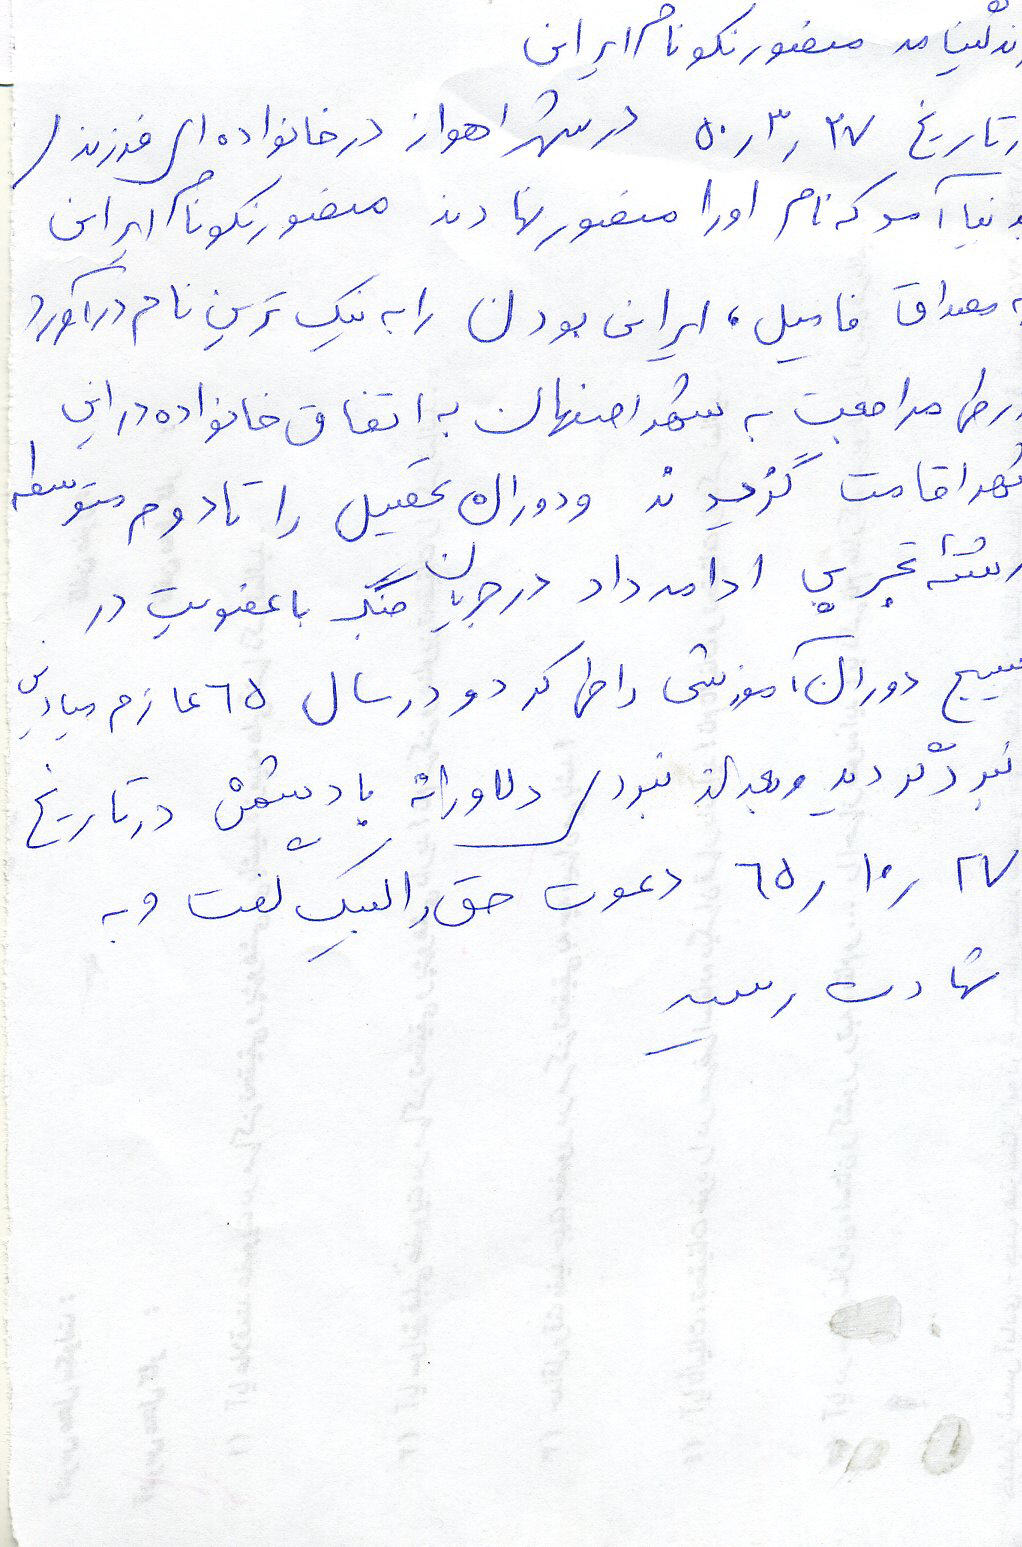 زندگینامه منصور نکونام ایرانی
در تاریخ ۲۷ ر ۳ ر ۵۰ در شهر اهواز در خانواده ای فرزندی
بدنیا آمد که نام او را منصور نهادند منصور نکونام ایرانی
به مصداق فامیل، ایرانی بودن را به نیک ترین نام در آورد
در طی مراجعت به شهر اصفهان به اتفاق خانواده در این
شهر اقامت گزیدند و دوران تحصیل را تا دوم متوسطه
رشته تجربی ادامه داد در جریان جنگ با عضویت در
بسیج دوران آموزشی را طی کرد و در سال ٦٥ عازم میادین
نبرد گردید و بعد از نبردی دلاورانه با دشمن در تاریخ
۲۷ ر ۱۰ ر ٦٥ دعوت حق را لبیک گفت و به
شهادت رسید